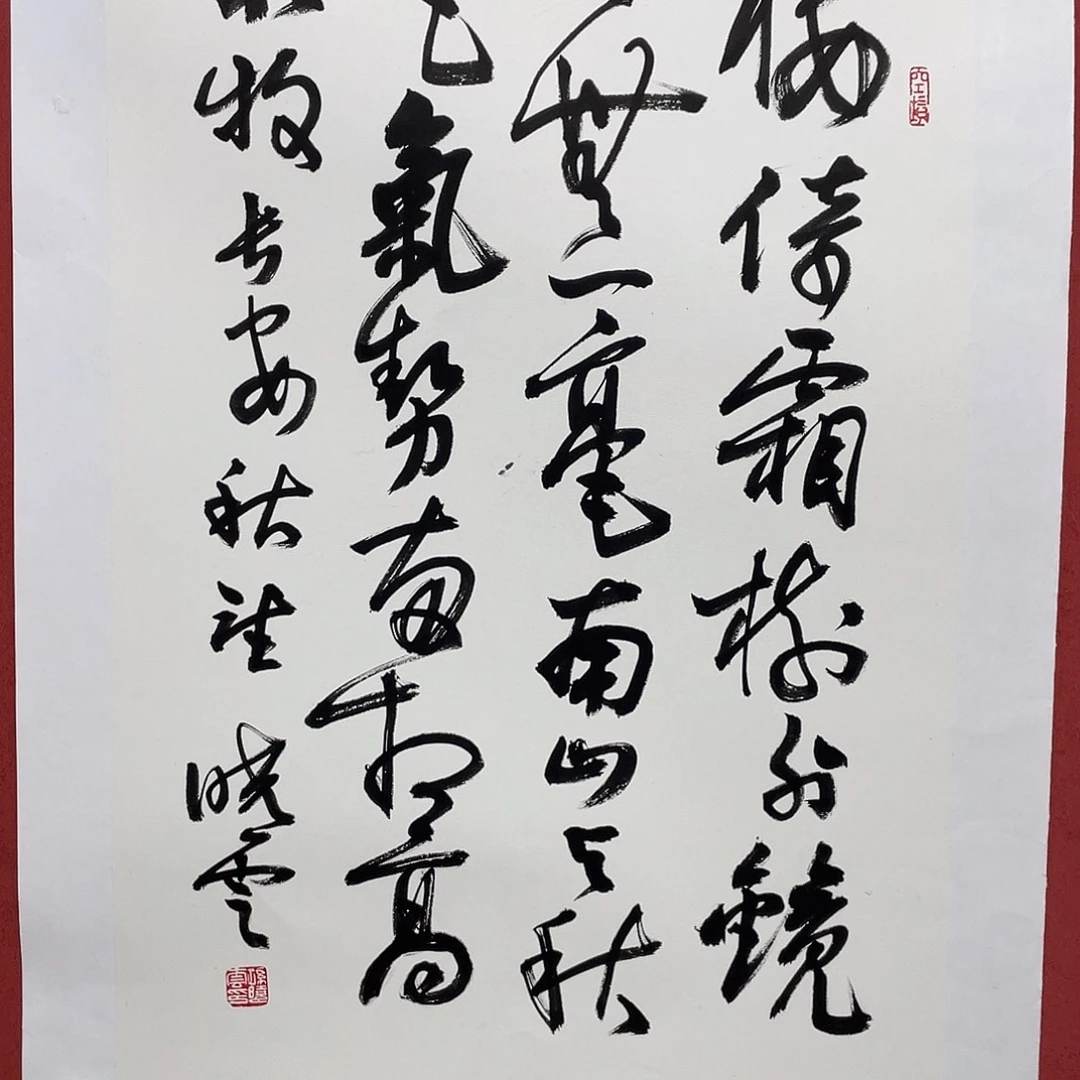 樓倚霜樹外鏡
無一毫南山与秋
色氣勢兩相高
牧長安秋望 曉雲